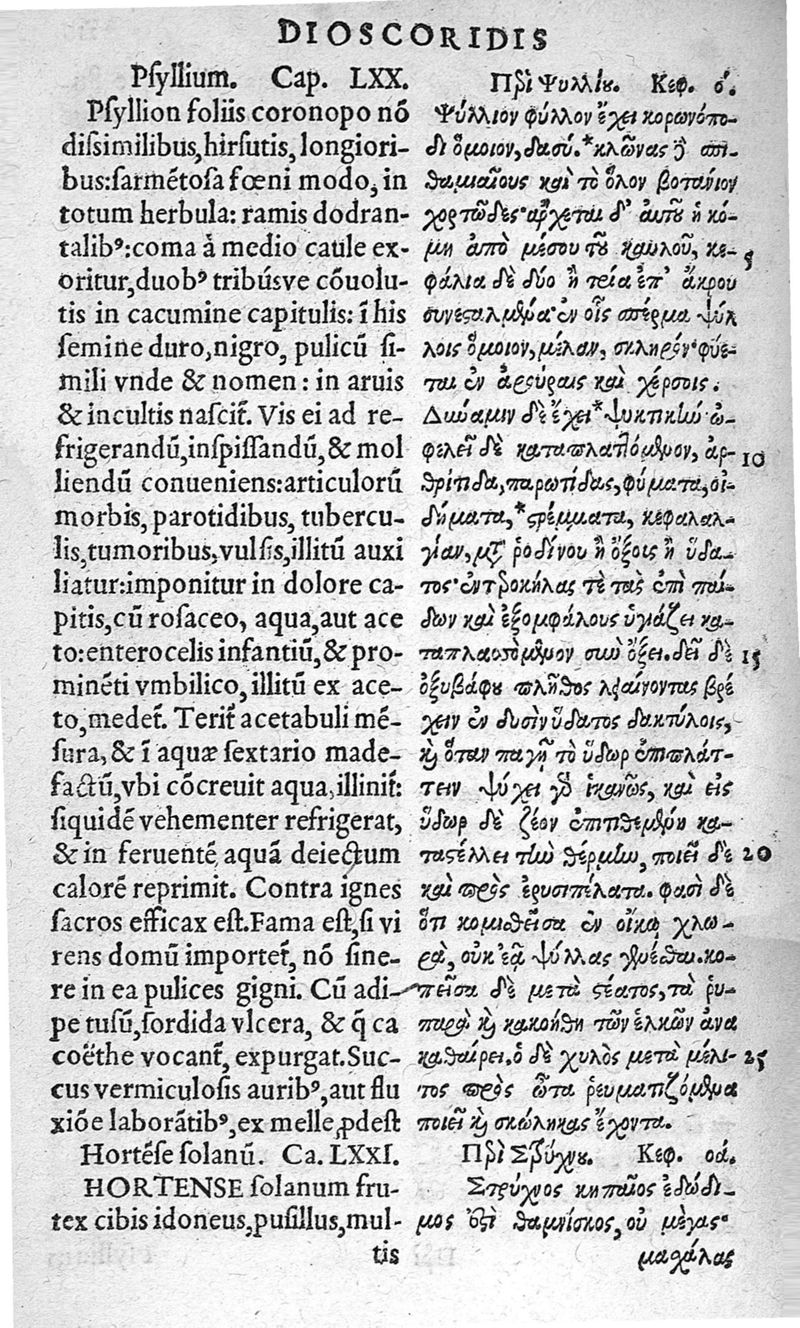 DIOSCORIDIS
Pſyllium. Cap. LXX.
Pſyllion foliis coronopo nō
diſsimilibus,hirſutis,longiori-
bus:ſarmētoſa fœni modo, in
totum herbula: ramis dodran-
talibꝰ:coma à medio caule ex-
oritur,duobꝰ tribúsve cōuolu-
tis in cacumine capitulis: ī his
ſemine duro,nigro, pulicū ſi-
mili vnde & nomen: in aruis
& incultis naſcit̃. Vis ei ad re-
frigerandū,inſpiſſandū,& mol
liendū conueniens:articulorū
morbis, parotidibus, tubercu-
lis,tumoribus,vulſis,illitū auxi
liatur:imponitur in dolore ca-
pitis,cū roſaceo, aqua,aut ace
to:enterocelis infantiū,& pro-
minēti vmbilico, illitū ex ace-
to,medet̃. Terit̃ acetabuli mē-
ſura, & ī aquæ ſextario made-
factū,vbi cōcreuit aqua,illinit̃:
ſiquidē vehementer refrigerat,
& in feruentē aquā deiectum
calorē reprimit. Contra ignes
ſacros efficax eſt.Fama eſt,ſi vi
rens domū importet̃, nō ſine-
re in ea pulices gigni. Cū adi-
pe tuſū,ſordida vlcera, & q̄ ca
coëthe vocant̃, expurgat.Suc-
cus vermiculoſis auribꝰ,aut flu
xiōe laborātibꝰ,ex melle ꝓdeſt
Hortēſe ſolanū. Ca. LXXI.
HORTENSE ſolanum fru-
tex cibis idoneus,puſillus,mul-
tis
Περὶ Ψυλλίου. Κεφ. ό.
Ψύλλιον φύλλον ἔχει κορωνόπο-
δι ὅμοιον, δασύ.*κλῶνας δὲ σπι-
θαμιαίους καὶ τὸ ὅλον βοτάνιον
χορτῶδες· ἄρχεται δ' αὐτοῦ ἡ κό-
μη ἀπὸ μέσου τοῦ καυλοῦ, κε-
5
φάλια δὲ δύο ἢ τρία ἐπ' ἄκρου
συνεσταλμένα· ἐν οἷς σπέρμα ψύλ
λοις ὅμοιον, μέλαν, σκληρόν· φύε-
ται ἐν ἀρούραις καὶ χέρσοις.
Δύναμιν δὲ ἔχει *ψυκτικὴν· ὠ-
φελεῖ δὲ καταπλαττόμενον, ἀρ-
10
θρίτιδα, παρωτίδας, φύματα, οἰ-
δήματα, *στρέμματα, κεφαλαλ-
γίαν, μετὰ ῥοδίνου ἢ ὄξοις ἢ ὕδα-
τος· ἐντροκήλας τὲ τὰς ἐπὶ παί-
δων καὶ ἐξομφάλους ὑγιάζει κα-
ταπλασσόμενον σὺν ὄξει. δεῖ δὲ
15
ὀξυβάφου πλῆθος λεαίνοντας βρέ
χειν ἐν δυσὶν ὕδατος δακτύλοις,
καὶ ὅταν παγῇ τὸ ὕδωρ ἐπιπλάτ-
τειν ψύχει γὰρ ἱκανῶς, καὶ εἰς
ὕδωρ δὲ ζέον ἐπιτιθεμένη κα-
ταστέλλει τὴν θέρμην, ποιεῖ δὲ
20
καὶ πρὸς ἐρυσιπέλατα. φασὶ δὲ
ὅτι κομιθεῖσα ἐν οἴκῳ χλω-
ρὰ, οὐκ ἐᾷ ψύλλας γενέσθαι. κο-
πεῖσα δὲ μετὰ στέατος, τὰ ῥυ-
παρὰ καὶ κακοήθη τῶν ἑλκῶν ἀνα
καθαίρει. ὁ δὲ χυλὸς μετὰ μέλι-
25
τος πρὸς ὦτα ῥευματιζόμενα
ποιεῖ καὶ σκώληκας ἔχοντα.
Περὶ Στρύχνου. Κεφ. οά.
Στρύχνος κηπαῖος ἐδώδι-
μος ἐστὶ θαμνίσκος, οὐ μέγας·
μαχάλας